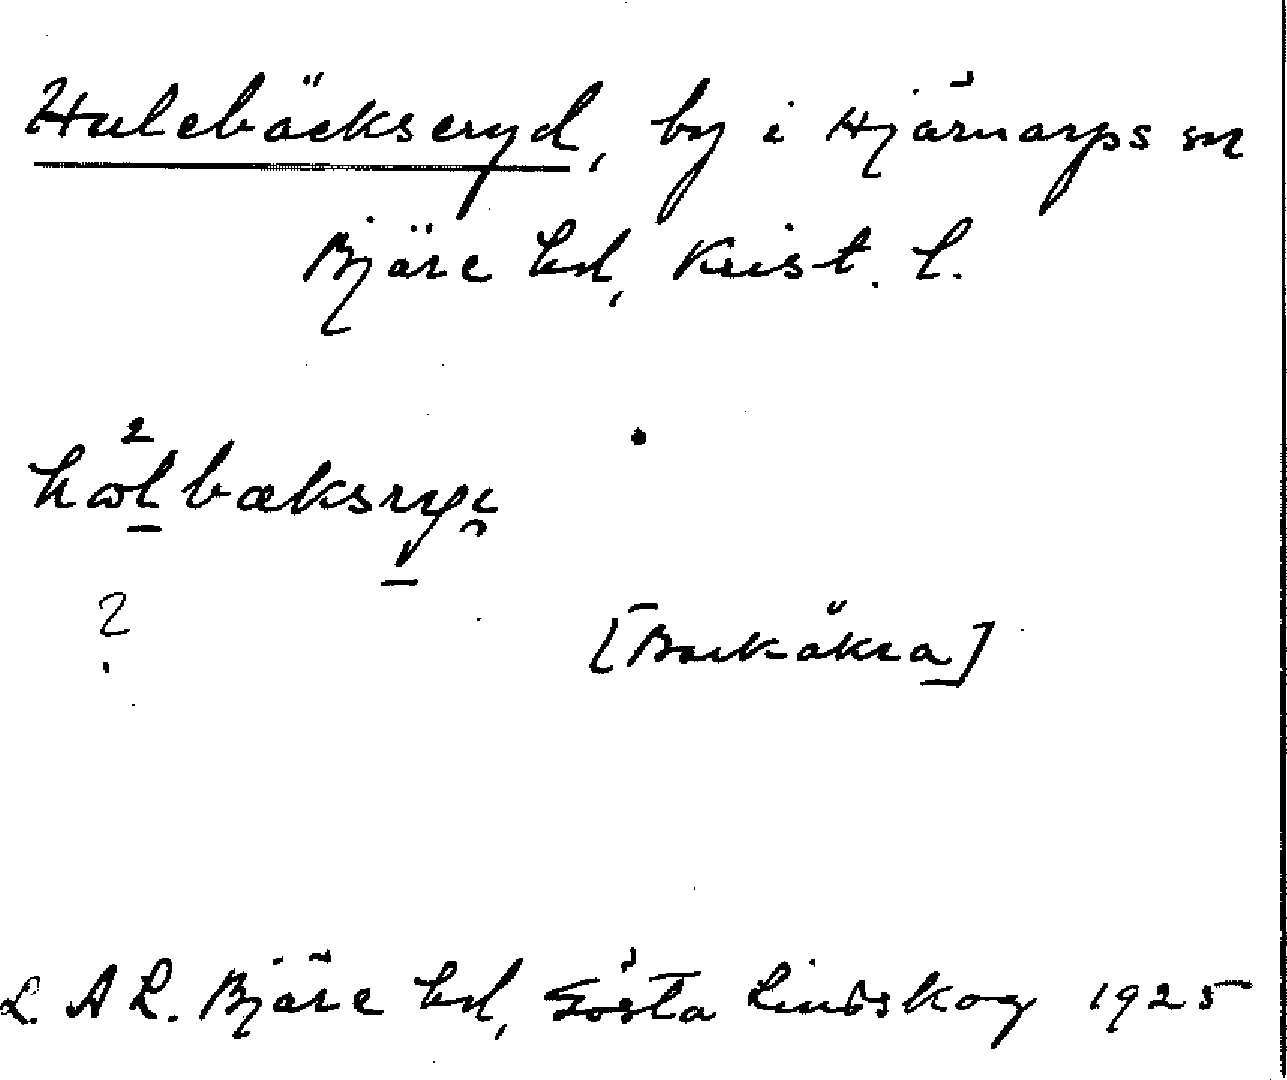 Hulebäckseryd, by i Hjärnarps sn
Bjäre hd, Krist. l.
hω²lbæksryi̯
?
[Barkåkra]
L. A L. Bjäre hd, Gösta Lindskog 1925